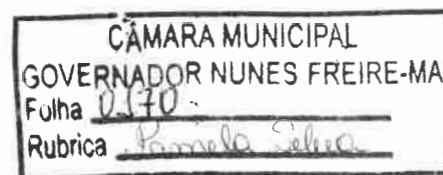 CÂMARA MUNICIPAL
GOVERNADOR NUNES FREIRE-MA
Folha 0170
Rubrica Pamela